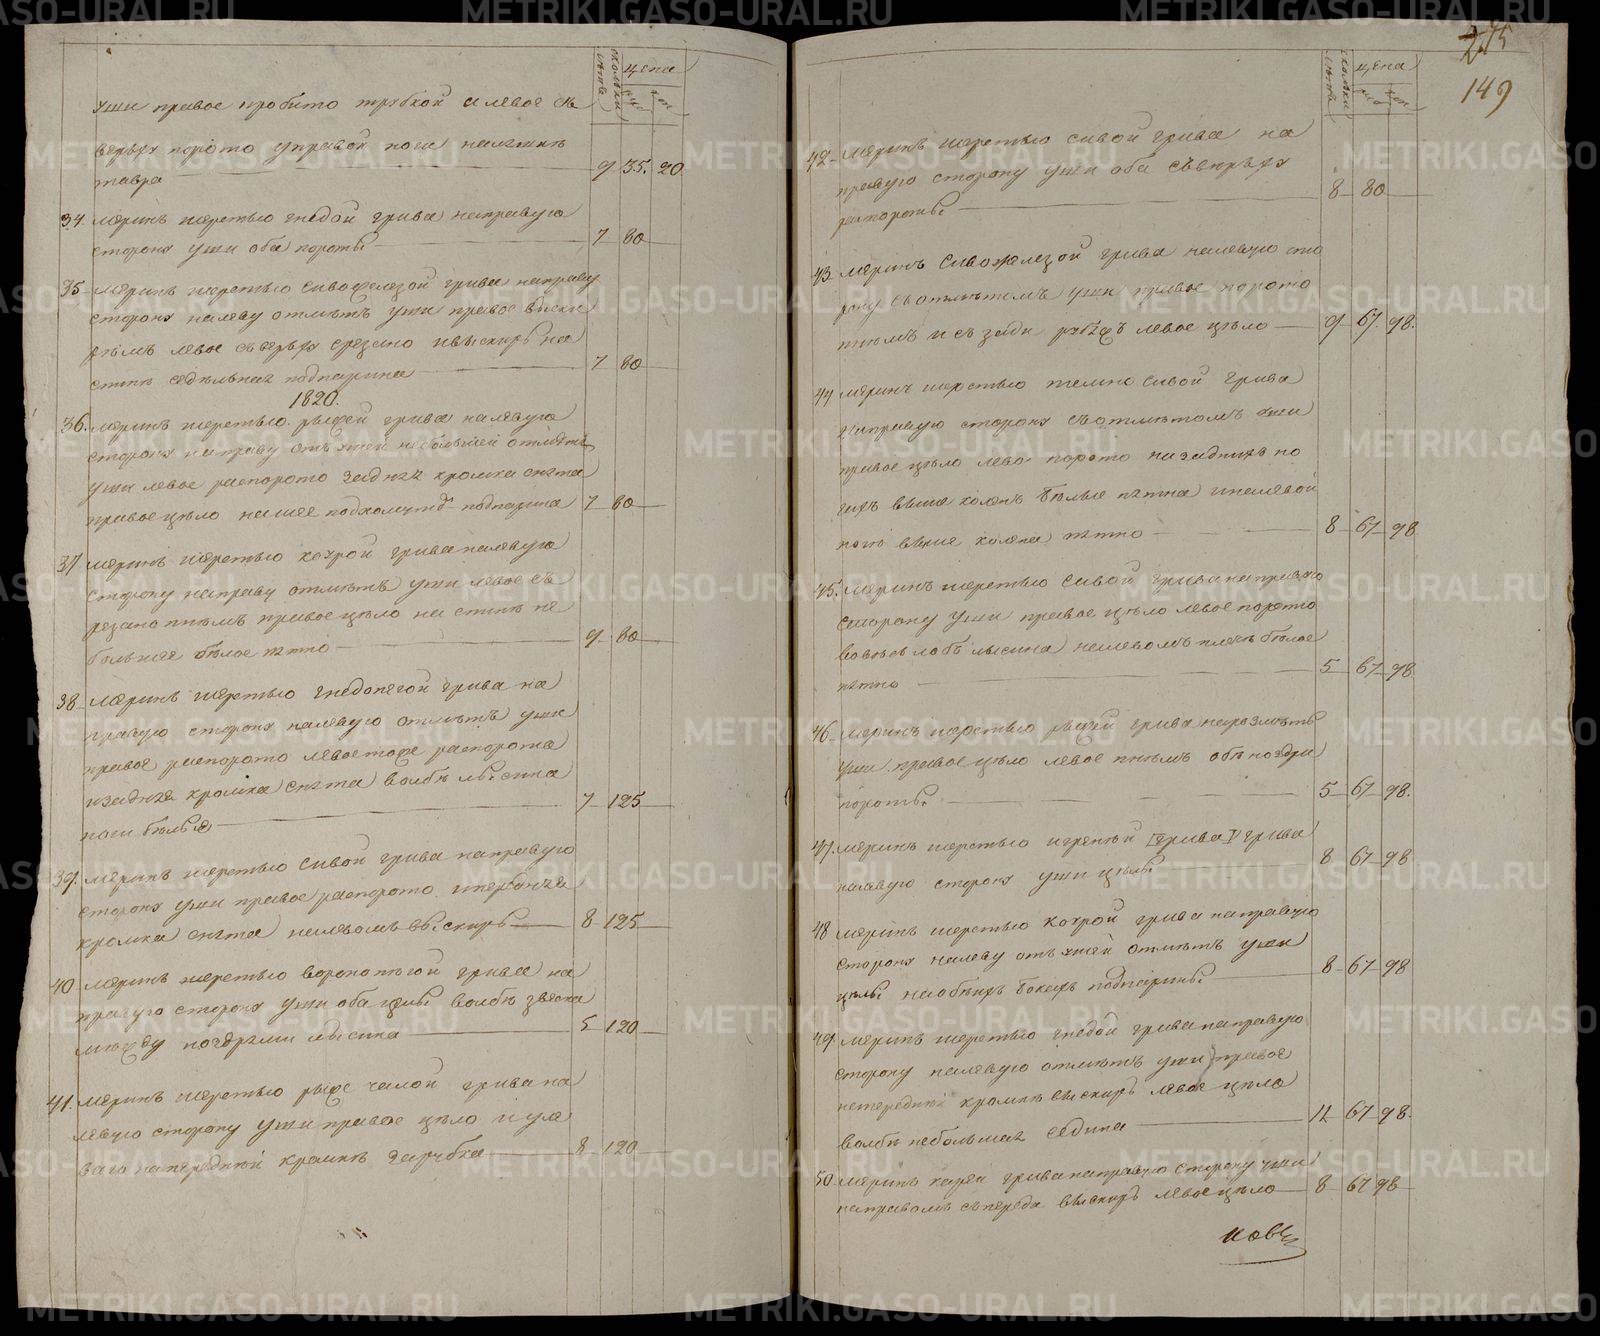 сколки летъ
цена
руб
коп
уши правое пробито трубкой а левое съ
верьху порото управой ноги нальшкъ
тавра 9 35. 20
34 меринъ шерстью гнедой грива направую
сторону уши оба пороты 7 80
35 меринъ шерстью сивожелезой грива направу
сторону налеву отметъ уши правое выски
ремъ левое съверьху срезано ивыскирь на
спине седельная подпарина 7 80
1820.
36. меринъ шерстью рыжей грива налевую
сторону направу отъ ушей небольшей отметъ
уши левое распорото задняя кромка снята
правое цело нашее подхомутъ подпарина 7 80
37 меринъ шерстью каурой грива налевую
сторону направу отметъ уши левое съ
резано пнемъ правое цело на спине не
большее белое пятно 9 80
38 меринъ шерстью гнедопегой грива на
правую сторону налевую отметъ уши
правое распорото левоетоже распорота
изадняя кромка снята волбе лысина
ноги белые 7 125
39. меринъ шерстью сивой грива направую
сторону уши правое распорото ипередняя
кромка снята налевомъ выскирь 8 125
40 меринъ шерстью воронопегой грива на
правую сторону уши оба целы волбе звеска
между ноздрями лысина 5 120
41. меринъ шерстью рыже чалой грива на
левую сторону уши правое цело и уле
ваго напередней кромке зарубка 8 120
215
149
сколки летъ
цена
руб
коп
42 меринъ шерстью сивой грива на
правую сторону уши оба съверьху
распороты 8 80
43 меринъ сивожелезой грива налевую сто
рону съотметомъ уши правое порото
пнемъ и съ зади рубежъ левое цело 9 67. 98.
44 меринъ шерстью темно сивой грива
направую сторону съотметомъ уши
правое цело лево порото назаднихъ но
гахъ выше коленъ белые пятна иналевой
ноге выше колена пятно 8 67 98
45. меринъ шерстью сивой грива направую
сторону уши правое цело левое порото
вовесь лобъ лысина налевомъ плече белое
пятно 5 67 98
46 меринъ шерстью рыжей грива наразметъ
уши правое цело левое пнемъ обе ноздри
пороты 5 67 98.
47. меринъ шерстью игреней грива грива
налевую сторону уши целы 8 67 98
48 меринъ шерстью каурой грива направую
сторону налеву отъ ушей отметъ уши
целы наобеихъ бокахъ подпарины 8 67 98
49 меринъ шерстью гнедой грива направую
сторону налевую отметъ уши правое
напередней кромке выскирь левое цело
волбе небольшая седина 12 67 98.
50 меринъ карей грива направую сторону уши
направомъ съпереди выскирь левое цело 8 67 98
METRIKI.GASO-URAL.RU